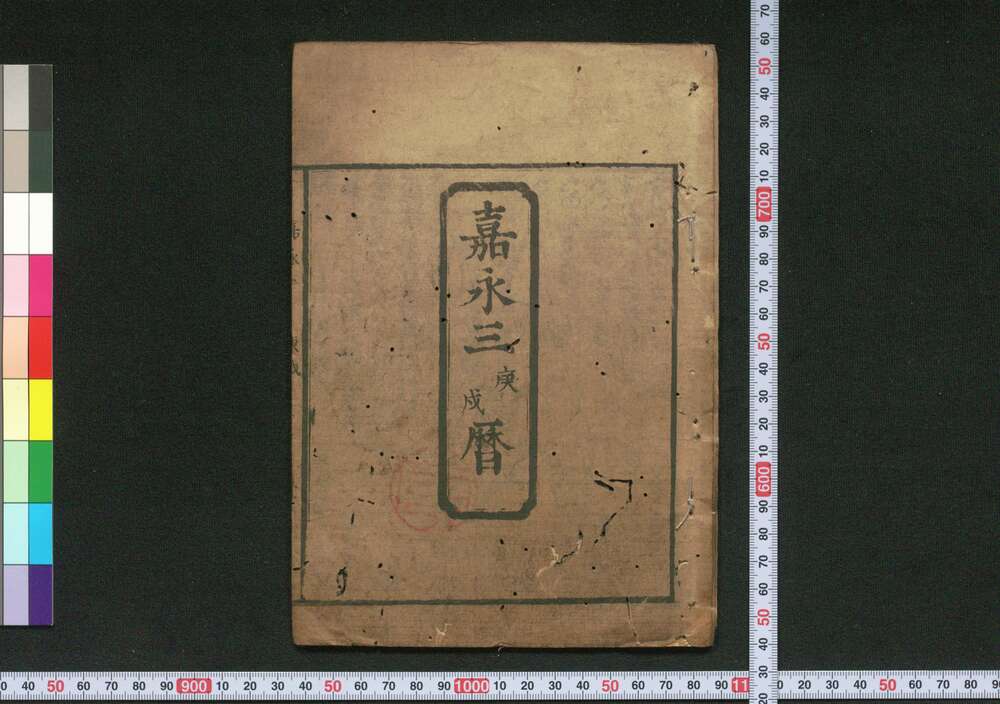 嘉永三
庚
戌
暦
70
60
50
40
30
20
10
700
90
80
70
60
50
40
30
20
10
600
90
80
70
60
50
40
30
20
0 40 50 60 70 80 90 900 10 20 30 40 50 60 70 80 90 1000 10 20 30 40 50 60 70 80 90 11 0 20 30 40 50 60 70 80 9